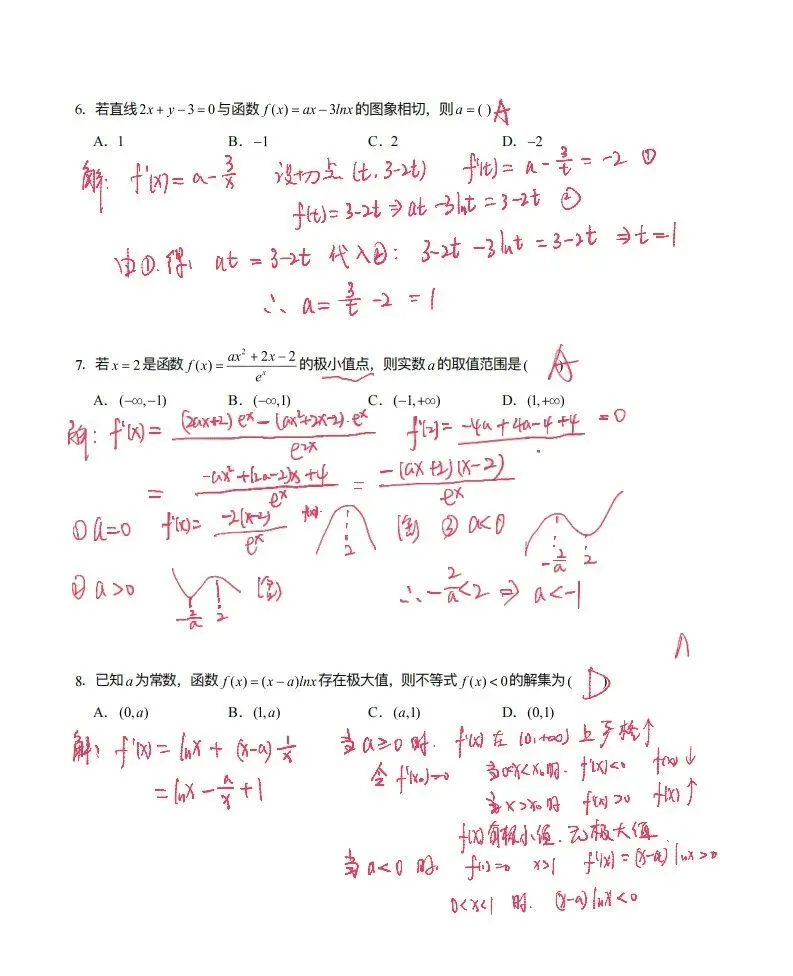 6. 若直线 2x + y − 3 = 0 与函数 f(x) = ax − 3lnx 的图象相切，则 a = ( ) A
A. 1 B. −1 C. 2 D. −2
解: f'(x) = a − 3/x 设切点 (t, 3−2t) f'(t) = a − 3/t = −2 ①
f(t) = 3−2t ⇒ at − 3lnt = 3−2t ②
由①.得: at = 3−2t 代入②: 3−2t − 3lnt = 3−2t ⇒ t=1
∴ a = 3/t − 2 = 1
7. 若 x = 2 是函数 f(x) = (ax² + 2x − 2)/eˣ 的极小值点，则实数 a 的取值范围是 ( A )
A. (−∞,−1) B. (−∞,1) C. (−1,+∞) D. (1,+∞)
解: f'(x) = ((2ax+2)eˣ − (ax²+2x−2)·eˣ)/e²ˣ f'(2) = −4a+4a−4+4 = 0
= (−ax²+(2a−2)x+4)/eˣ = −(ax+2)(x−2)/eˣ
① a=0 f'(x) = −2(x−2)/eˣ f(x). 2 (舍) ③ a<0 −2/a 2
② a>0 −2/a 2 (舍) ∴ −2/a < 2 ⇒ a<−1
8. 已知 a 为常数，函数 f(x) = (x − a)lnx 存在极大值，则不等式 f(x) < 0 的解集为 ( D )
A. (0,a) B. (1,a) C. (a,1) D. (0,1)
解: f'(x) = lnx + (x−a)1/x 当 a≥0 时. f'(x) 在 (0,+∞) 上 ↑
= lnx − a/x + 1 令 f'(x₀)=0 当0<x<x₀时. f'(x)<0 f(x)↓
当 x>x₀时 f'(x)>0 f(x)↑
f(x)有极小值. 无极大值
当 a<0 时. f(1)=0 x>1 f'(x) = (x−a)lnx>0
0<x<1 时. (x−a)lnx<0